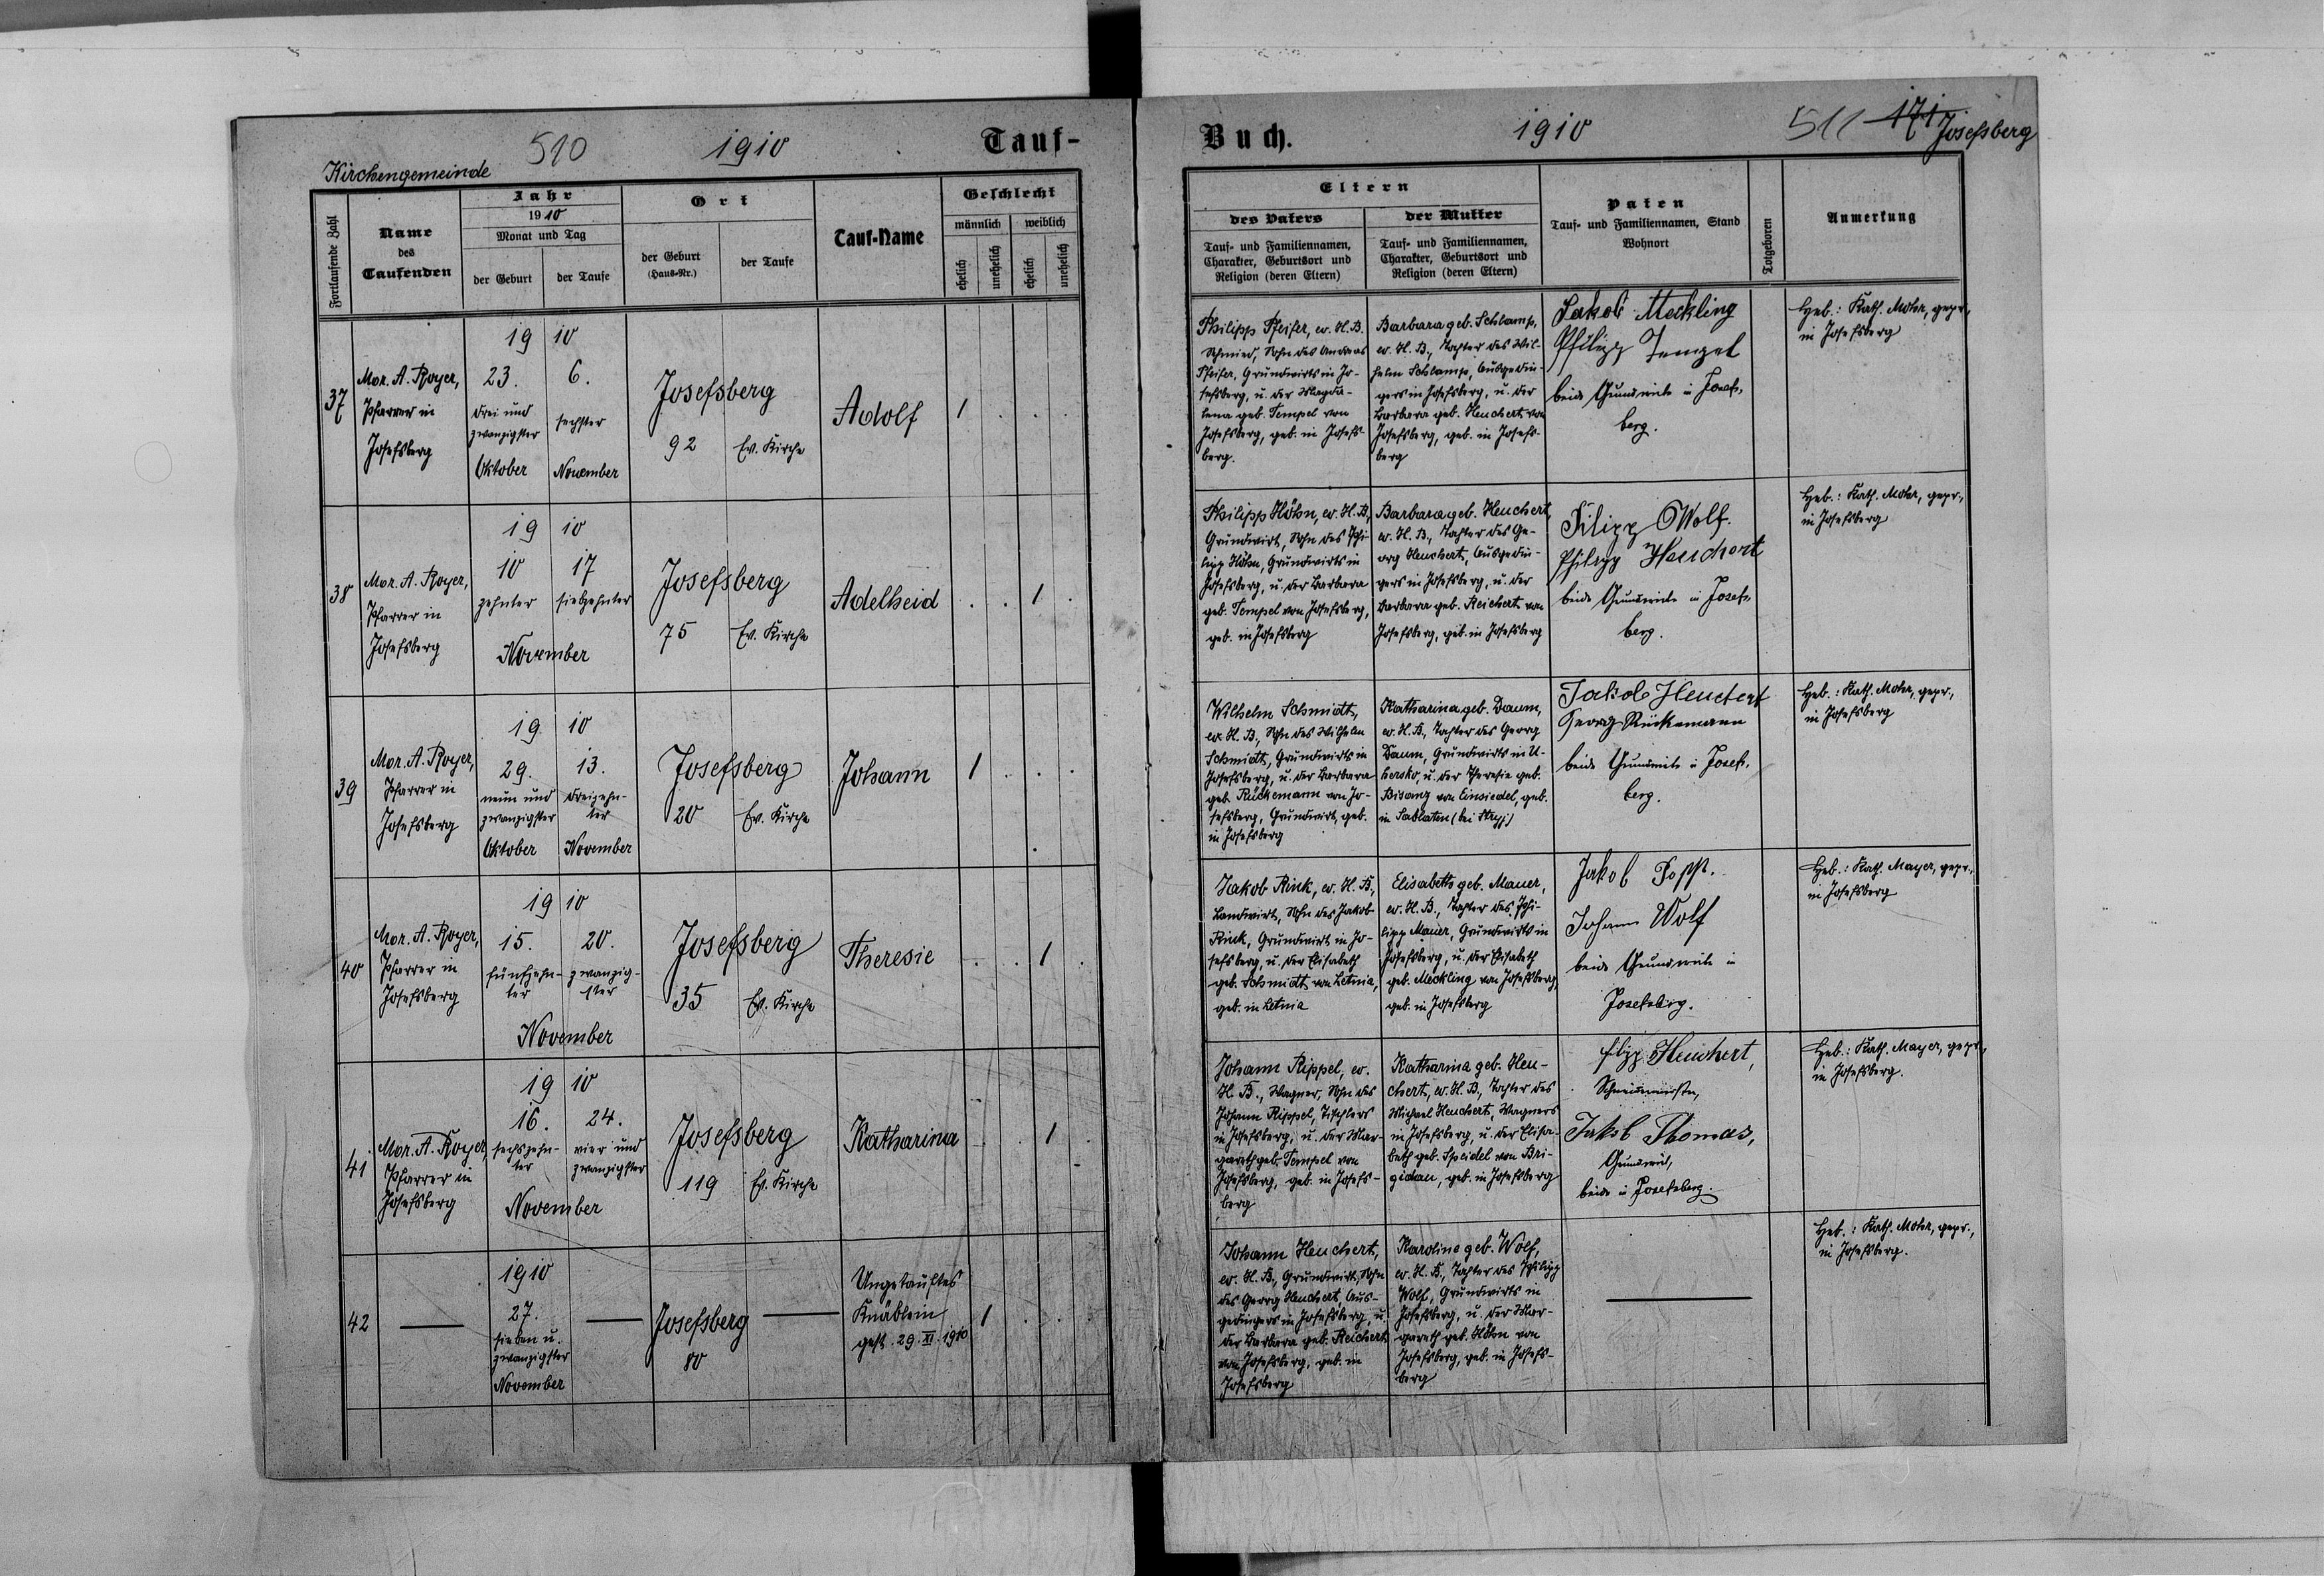 510
1910
Tauf-
Kirchengemeinde
Fortlaufende Zahl
Name
des
Taufenden
Jahr
1910
Monat und Tag
der Geburt
der Taufe
Ort
der Geburt
(Haus-Nr.)
der Taufe
Tauf-Name
Geschlecht
männlich
weiblich
ehelich
unehelich
ehelich
unehelich
37
Mor. A. Royer,
Pfarrer in
Josefsberg
19 10
23.
drei und
zwanzigster
Oktober
6.
sechster
November
Josefsberg
92
Ev. Kirche
Adolf
1 . . .
38
Mor. A. Royer,
Pfarrer in
Josefsberg
19 10
10
zehnter
17
siebzehnter
November
Josefsberg
75
Ev. Kirche
Adelheid
. . 1 .
39
Mor. A. Royer,
Pfarrer in
Josefsberg
19 10
29.
neun und
zwanzigster
Oktober
13.
dreizehn-
ter
November
Josefsberg
20
Ev. Kirche
Johann
1 . . .
40
Mor. A. Royer,
Pfarrer in
Josefsberg
19 10
15.
fünfzehn-
ter
20.
zwanzig-
ster
November
Josefsberg
35
Ev. Kirche
Theresie
. . 1 .
41
Mor. A. Royer,
Pfarrer in
Josefsberg
19 10
16.
sechszehn-
ter
24.
vier und
zwanzigster
November
Josefsberg
119
Ev. Kirche
Katharina
. . 1 .
42
1910
27.
sieben u.
zwanzigster
November
Josefsberg
80
Ungetauftes
Knäblein
gest. 29. XI. 1910
1 . . .
Buch.
1910
511
171
Josefsberg
Eltern
des Vaters
Tauf- und Familiennamen,
Charakter, Geburtsort und
Religion (deren Eltern)
der Mutter
Tauf- und Familiennamen,
Charakter, Geburtsort und
Religion (deren Eltern)
Paten
Tauf- und Familiennamen, Stand
Wohnort
Totgeboren
Anmerkung
Philipp Pfeifer, ev. H. B.
Schmied, Sohn des Andreas
Pfeifer, Grundwirts in Jo-
sefsberg, u. der Magda-
lena geb. Tempel von
Josefsberg, geb. in Josefs-
berg.
Barbara geb. Schlamp,
ev. H. B., Tochter des Wil-
helm Schlamp, Ausgedin-
gers in Josefsberg, u. der
Barbara geb. Heuchert von
Josefsberg, geb. in Josefs-
berg
Jakob Meckling
Philipp Tempel
beide Grundwirte in Josefs-
berg.
Heb.: Kath. Mohr, gepr.,
in Josefsberg
Philipp Höhn, ev. H. B.,
Grundwirt, Sohn des Phi-
lipp Höhn, Grundwirts in
Josefsberg, u. der Barbara
geb. Tempel von Josefsberg,
geb. in Josefsberg
Barbara geb. Heuchert,
ev. H. B., Tochter des Ge-
org Heuchert, Ausgedin-
gers in Josefsberg, u. der
Barbara geb. Reichert von
Josefsberg, geb. in Josefsberg
Filipp Wolf.
Philipp Heuchert
beide Grundwirte in Josefs-
berg.
Heb.: Kath. Mohr, gepr.,
in Josefsberg
Wilhelm Schmidt,
ev. H. B., Sohn des Wilhelm
Schmidt, Grundwirts in
Josefsberg, u. der Barbara
geb. Rückemann von Jo-
sefsberg, Grundwirt, geb.
in Josefsberg
Katharina geb. Daum,
ev. H. B., Tochter des Georg
Daum, Grundwirts in U-
hersko, u. der Theresie geb.
Bisanz von Einsiedel, geb.
in (bei Stryj)
Jakob Heuchert
Georg Rückemann
beide Grundwirte in Josefs-
berg.
Heb.: Kath. Mohr, gepr.,
in Josefsberg
Jakob Rink, ev. H. B.,
Landwirt, Sohn des Jakob
Rink, Grundwirt in Jo-
sefsberg, u. der Elisabeth
geb. Schmidt von Letnia,
geb. in Letnia
Elisabeth geb. Mauer,
ev. H. B., Tochter des Phi-
lipp Mauer, Grundwirts in
Josefsberg, u. der Elisabeth
geb. Meckling von Josefsberg,
geb. in Josefsberg
Jakob Popp.
Johann Wolf
beide Grundwirte in
Josefsberg.
Heb.: Kath. Mayer, gepr.,
in Josefsberg
Johann Rippel, ev.
H. B., Wagner, Sohn des
Johann Rippel, Tischlers
in Josefsberg, u. der Mar-
gareth geb. Tempel von
Josefsberg, geb. in Josefs-
berg
Katharina geb. Heu-
chert, ev. H. B., Tochter des
Michael Heuchert, Wagners
in Josefsberg, u. der Elisa-
beth geb. Speidel von Bri-
gidau, geb. in Josefsberg
Filipp Heuchert,
Jakob Thomas,
Grundwirt,
beide in Josefsberg.
Heb.: Kath. Mayer, gepr.,
in Josefsberg.
Johann Heuchert,
ev. H. B., Grundwirt, Sohn
des Georg Heuchert, Aus-
gedingers in Josefsberg, u.
der Barbara geb. Reichert
von Josefsberg, geb. in
Josefsberg
Karoline geb. Wolf,
ev. H. B., Tochter des Philipp
Wolf, Grundwirts in
Josefsberg, u. der Mar-
gareth geb. Höhn von
Josefsberg, geb. in Josefs-
berg
Heb.: Kath. Mohr, gepr.,
in Josefsberg.